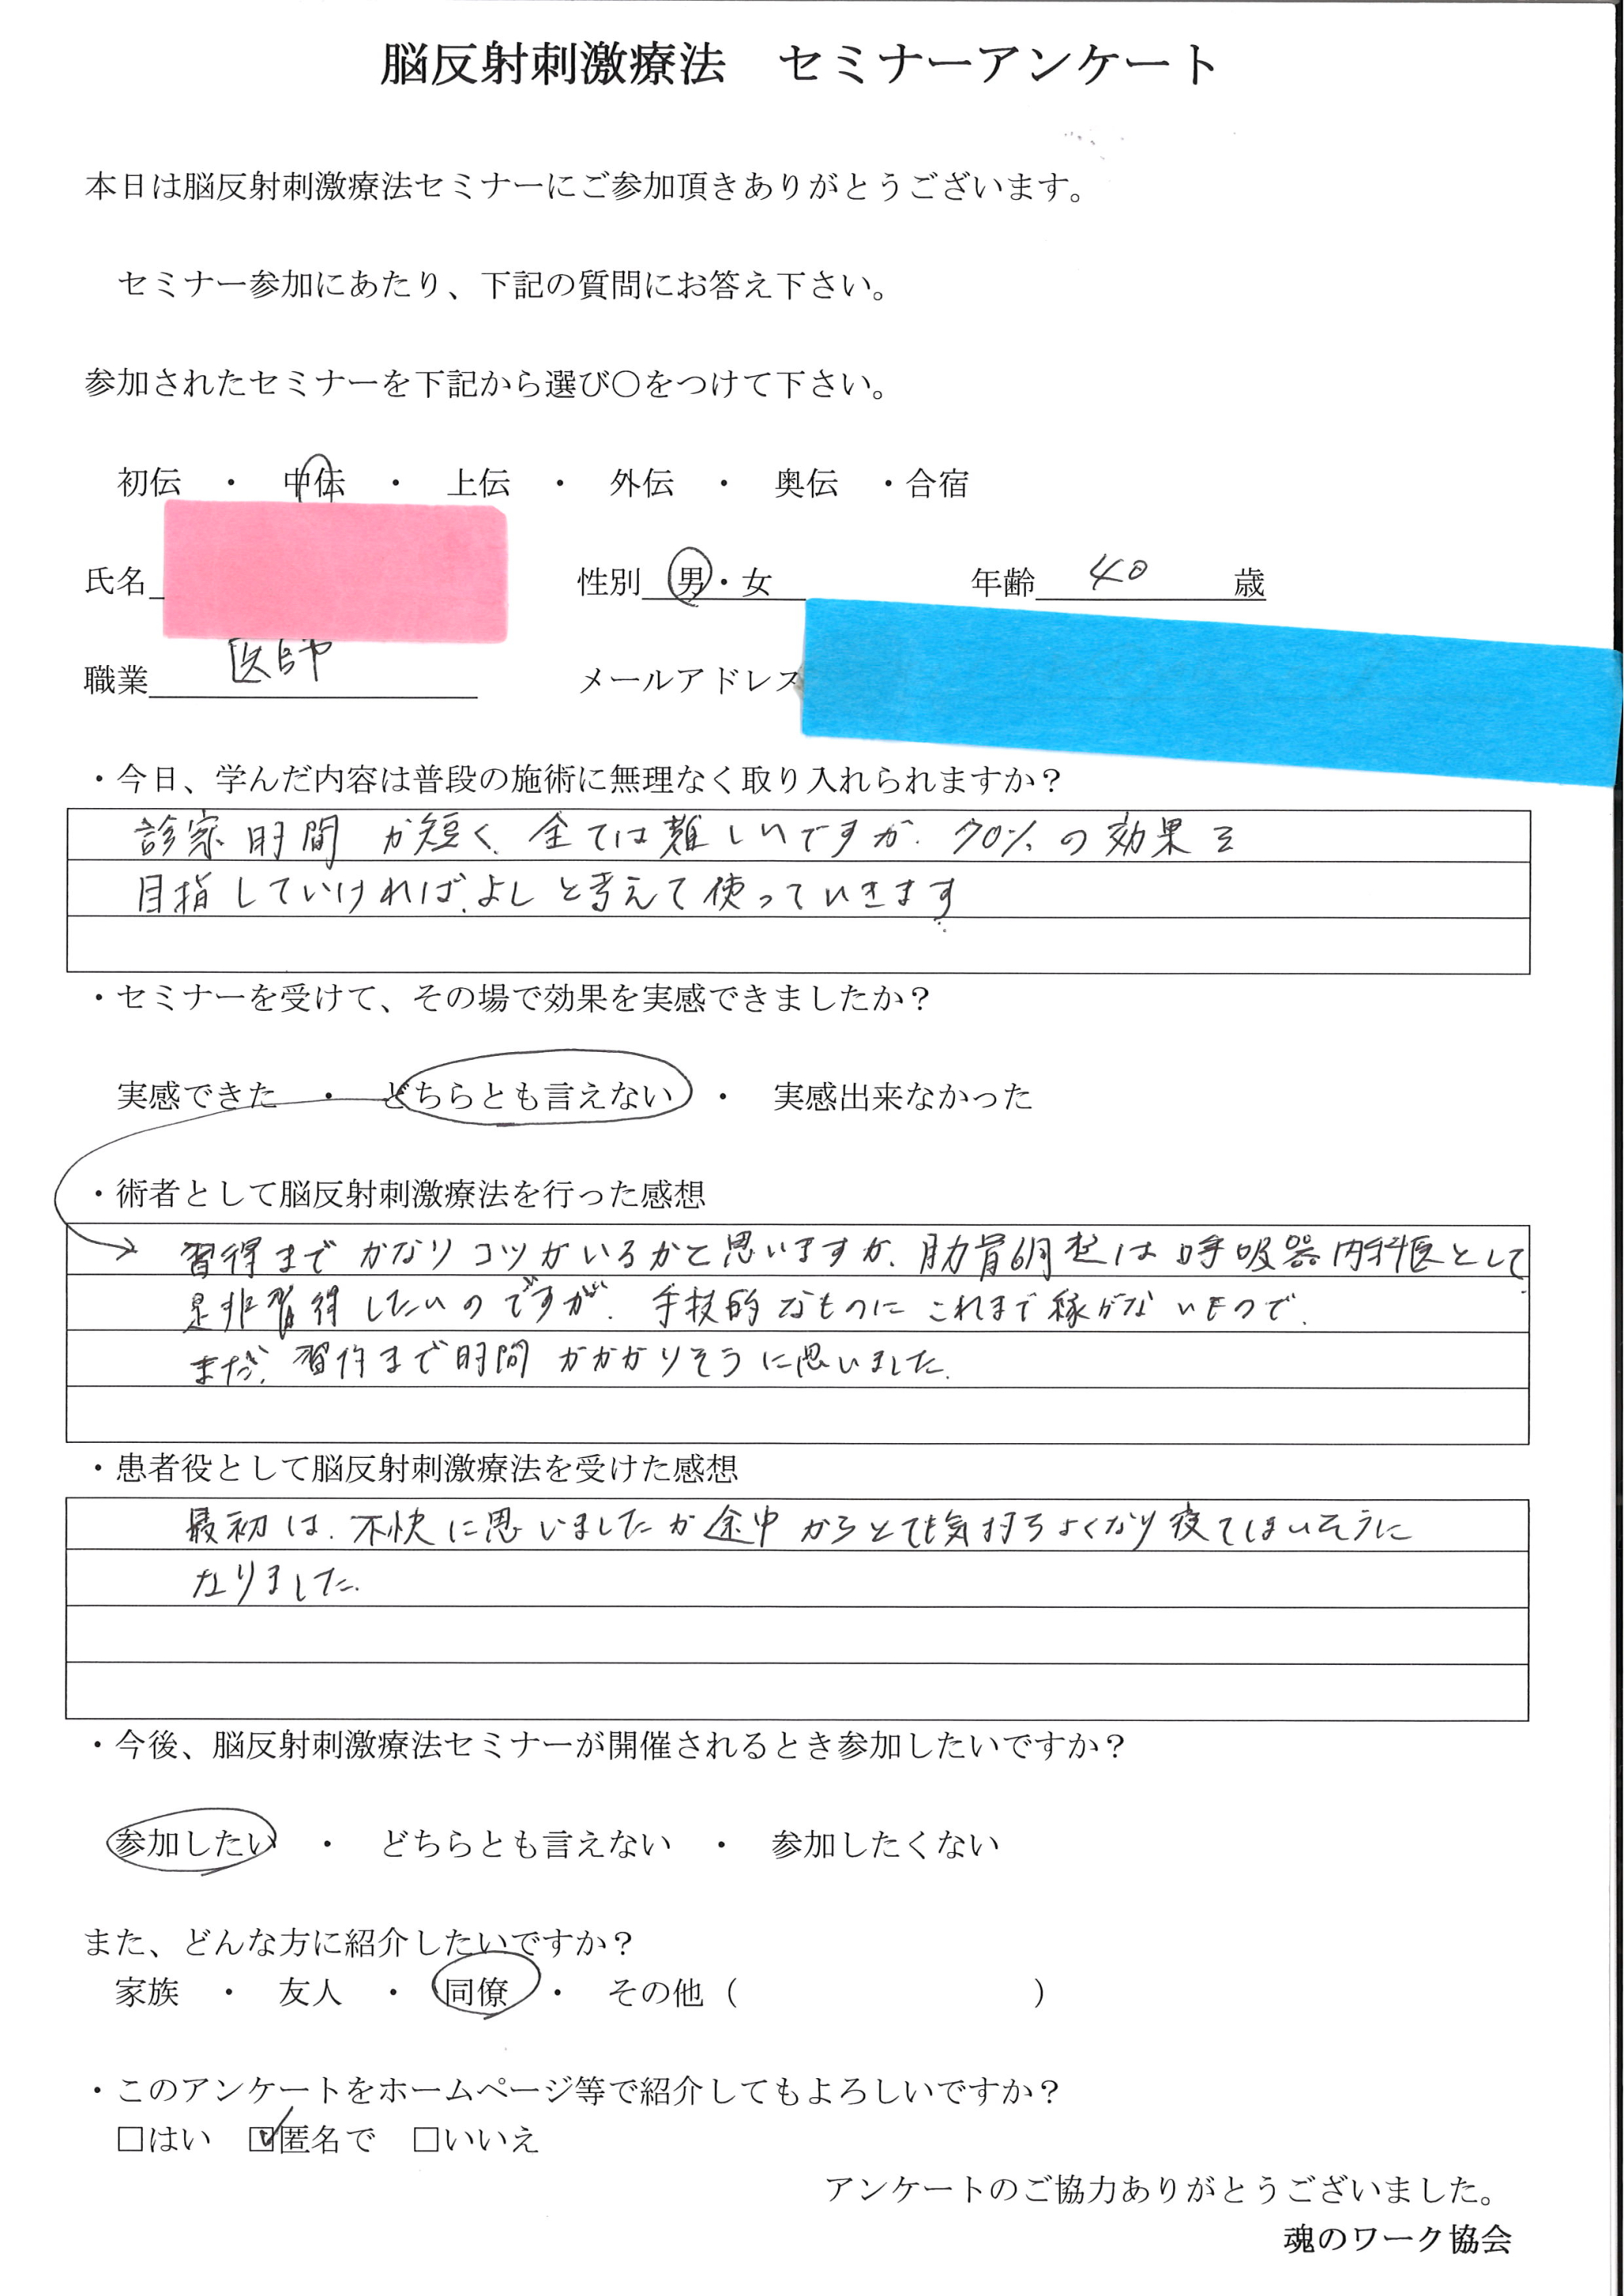 脳反射刺激療法 セミナーアンケート
本日は脳反射刺激療法セミナーにご参加頂きありがとうございます。
セミナー参加にあたり、下記の質問にお答え下さい。
参加されたセミナーを下記から選び〇をつけて下さい。
初伝 ・ 中伝 ・ 上伝 ・ 外伝 ・ 奥伝 ・合宿
氏名 性別 男・女 年齢 40 歳
職業 医師 メールアドレス
・今日、学んだ内容は普段の施術に無理なく取り入れられますか？
診察時間が短く、全ては難しいですが、70%の効果を
目指していければ、よしと考えて使っていきます
・セミナーを受けて、その場で効果を実感できましたか？
実感できた ・ どちらとも言えない ・ 実感出来なかった
・術者として脳反射刺激療法を行った感想
→ 習得までかなりコツがいるかと思いますが、肋骨は呼吸器内科医として
是非習得したいのですが、手技的なものにこれまで縁がないもので、
まだ、習得まで時間がかかりそうに思いました。
・患者役として脳反射刺激療法を受けた感想
最初は、不快に思いましたが途中からとても気持ちよくなり寝てしまいそうに
なりました。
・今後、脳反射刺激療法セミナーが開催されるとき参加したいですか？
参加したい ・ どちらとも言えない ・ 参加したくない
また、どんな方に紹介したいですか？
家族 ・ 友人 ・ 同僚 ・ その他（ ）
・このアンケートをホームページ等で紹介してもよろしいですか？
□はい ☑匿名で □いいえ
アンケートのご協力ありがとうございました。
魂のワーク協会